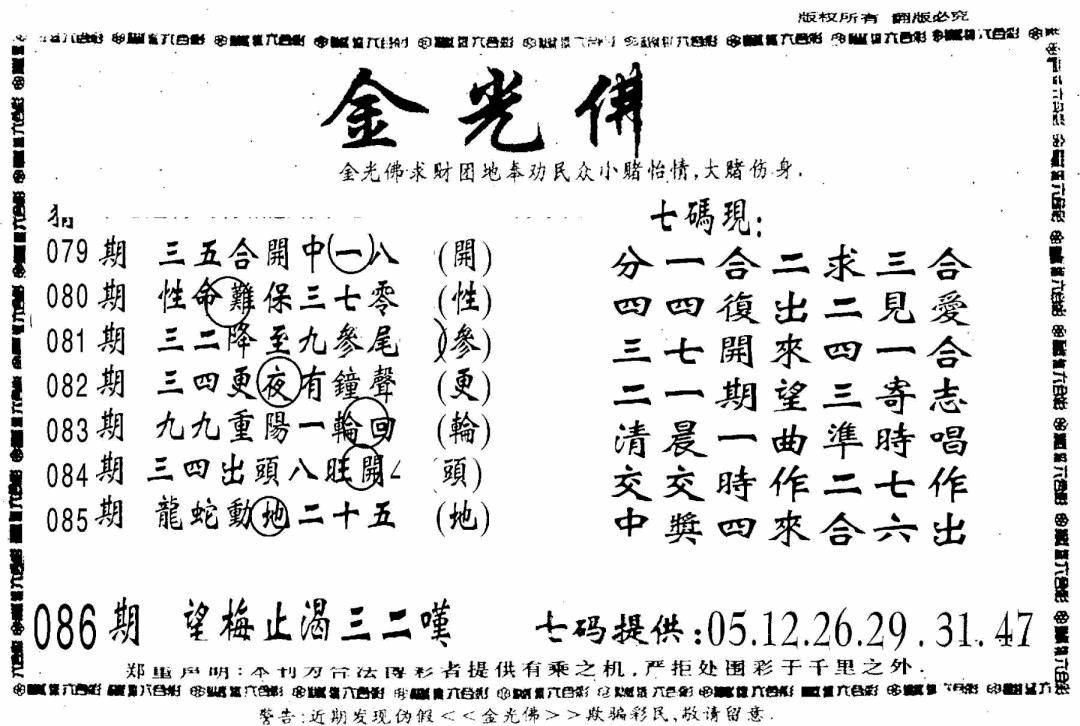 版权所有 翻版必究
金光佛
金光佛求财团地奉劝民众小赌怡情,大赌伤身.
七碼現:
079期 三五合開中一八 (開)
080期 性命難保三七零 (性)
081期 三二降至九參尾 (參)
082期 三四更夜有鐘聲 (更)
083期 九九重陽一輪回 (輪)
084期 三四出頭八旺開 (頭)
085期 龍蛇動地二十五 (地)
分一合二求三合
四四復出二見愛
三七開來四一合
二一期望三寄志
清晨一曲準時唱
交交時作二七作
中獎四來合六出
086期 望梅止渴三二嘆 七码提供:05.12.26.29.31.47
郑重声明:本刊为合法博彩者提供有乘之机,严拒处围彩于千里之外.
警告:近期发现伪假<<金光佛>>欺骗彩民,敬请留意.